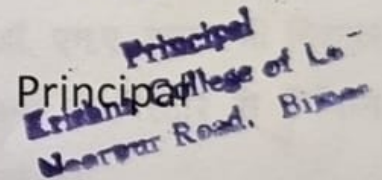 Principal
Principal
Krishna College of La
Noorpur Road. Bijnor